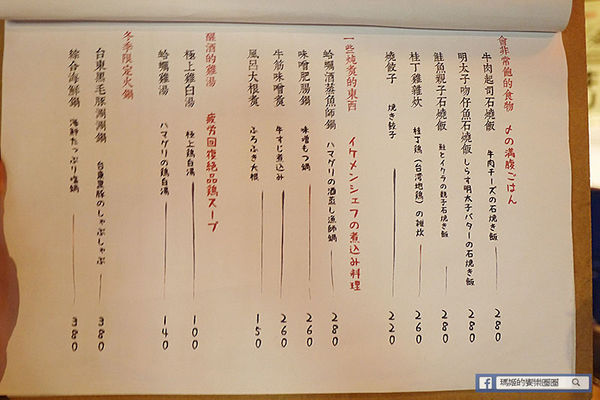 會非常飽的食物 〆の満腹ごはん
牛肉起司石燒飯 牛肉チーズの石焼き飯 280
明太子吻仔魚石燒飯 しらす明太子バターの石焼き飯 280
鮭魚親子石燒飯 鮭とイクラの親子石焼き飯 280
桂丁雞雜炊 桂丁鶏(台湾地鶏)の雑炊 260
燒餃子 焼き餃子 220
一些燒煮的東西 イケメンシェフの煮込み料理
蛤蠣酒蒸魚師鍋 ハマグリの酒蒸し漁師鍋 280
味噌肥腸鍋 味噌もつ鍋 260
牛筋味噌煮 牛すじ煮込み 260
風呂大根煮 ふろふき大根 150
醒酒的雞湯 疲労回復絶品鶏スープ
極上雞白湯 極上鶏白湯 100
蛤蠣雞湯 ハマグリの鶏白湯 140
冬季限定火鍋
台東黑毛豚涮涮鍋 台東黒豚のしゃぶしゃぶ 380
綜合海鮮鍋 海鮮たっぷり塩鍋 380
瑪姬的饗樂圈圈